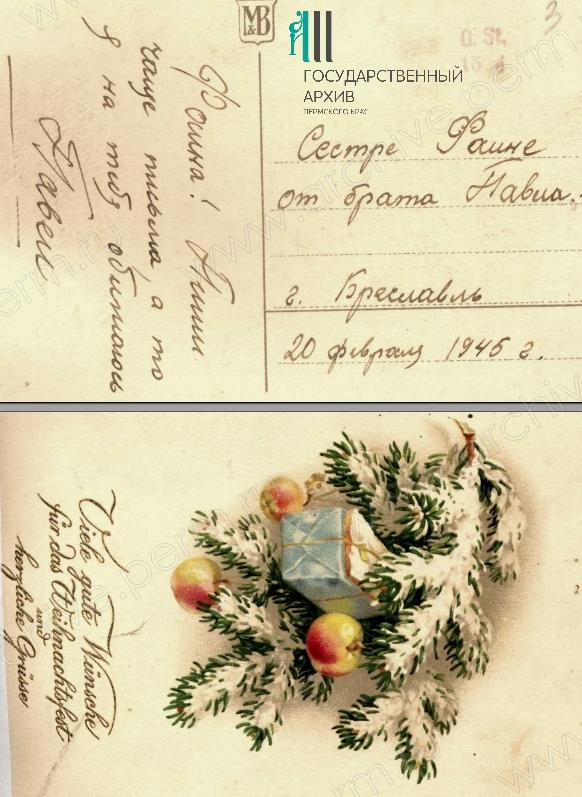 M
B&B
3
G. St.
15 4
ГОСУДАРСТВЕННЫЙ
АРХИВ
ПЕРМСКОГО КРАЯ
Фаина! Пиши
чаще письма а то
я на тебя обижаюсь
Павел
Сестре Фаине
от брата Павла.
г. Бреславль
20 февраля 1945 г.
Viele gute Wünsche
für das Weihnachtsfest
und
herzliche Grüsse